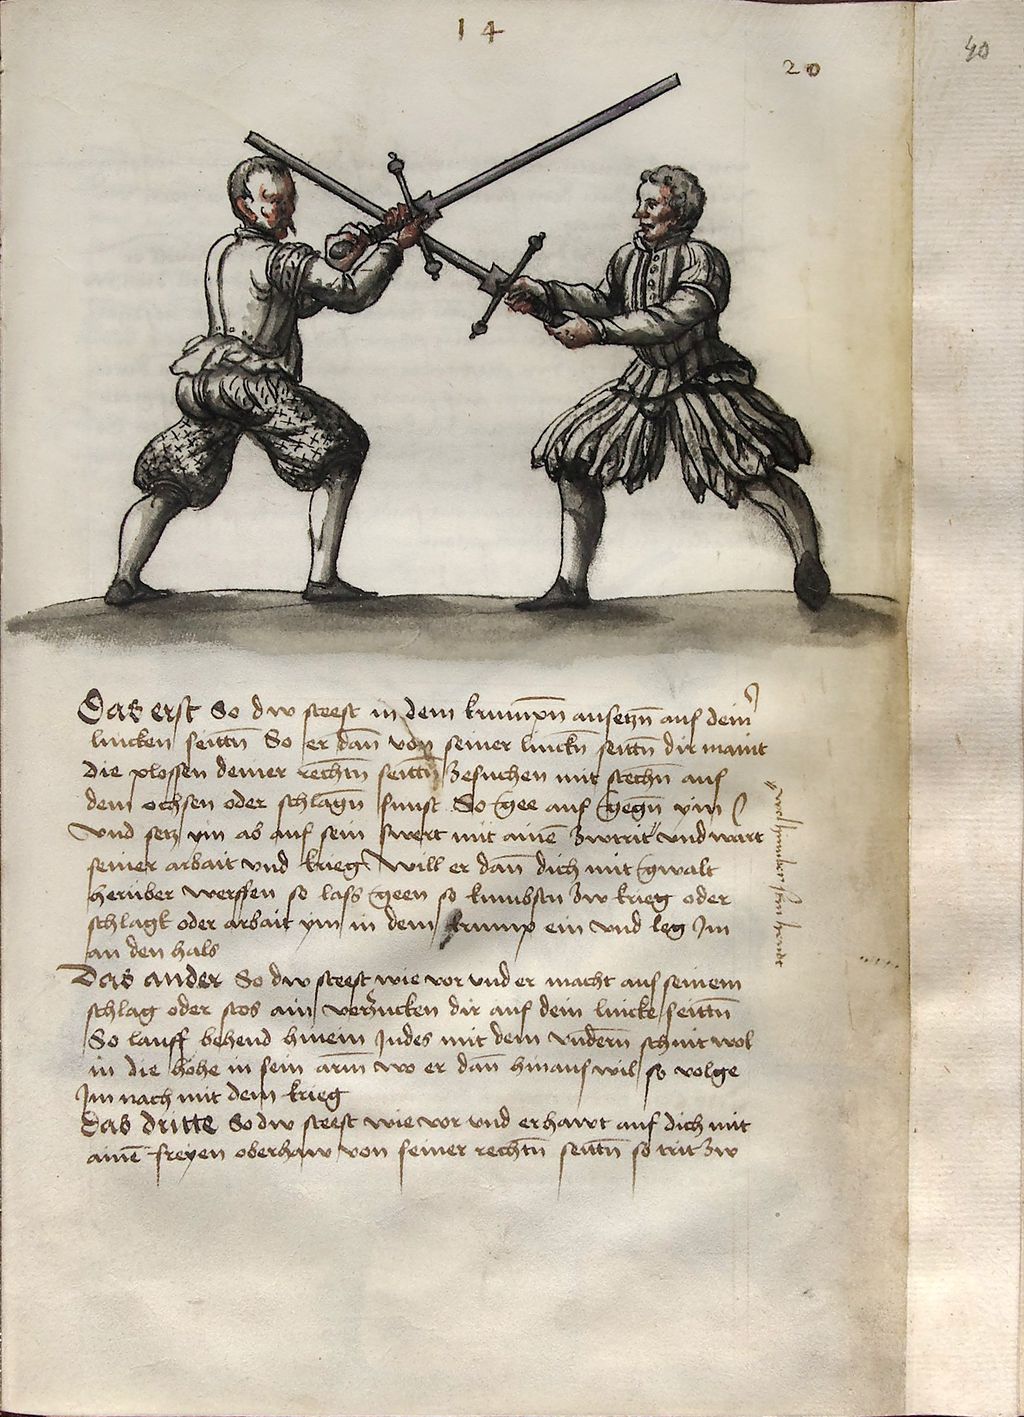 14
20
40
Das erst So dw steest in dem krumpn̄ ansetzn̄ auf deinr
lincken seittn̄ So er dan̄ von seiner linckn̄ seittn̄ dir maint
die plossen deiner rechtn̄ seittn̄ zesuchen mit stechn̄ auf
dem ochsen oder schlagn̄ sunst So gee auf gegn̄ ym
Vnd setz ym ab auf sein swert mit ainē zwtrit vnd wart
seiner arbait vnd krieg Will er dan̄ dich mit gwalt
herüber werffen so lass geen so kumbstu zw krieg oder
schlagk oder arbait ym in dem krump ein vnd leg Im
an den hals
Das ander So dw steest wie vor vnd er macht auf seinem
schlag oder stos ain verzucken dir auf dein lincke seittn̄
So lauff behend hinein Indes mit dem vndern̄ schnit wol
in die höhe in sein arm̄ wo er dan̄ hinaus wil so volge
Im nach mit dem krieg
Das dritte So dw steest wie vor vnd er hawt auf dich mit
ainē freyen oberhaw von seiner rechtn̄ seittn̄ so trit zw